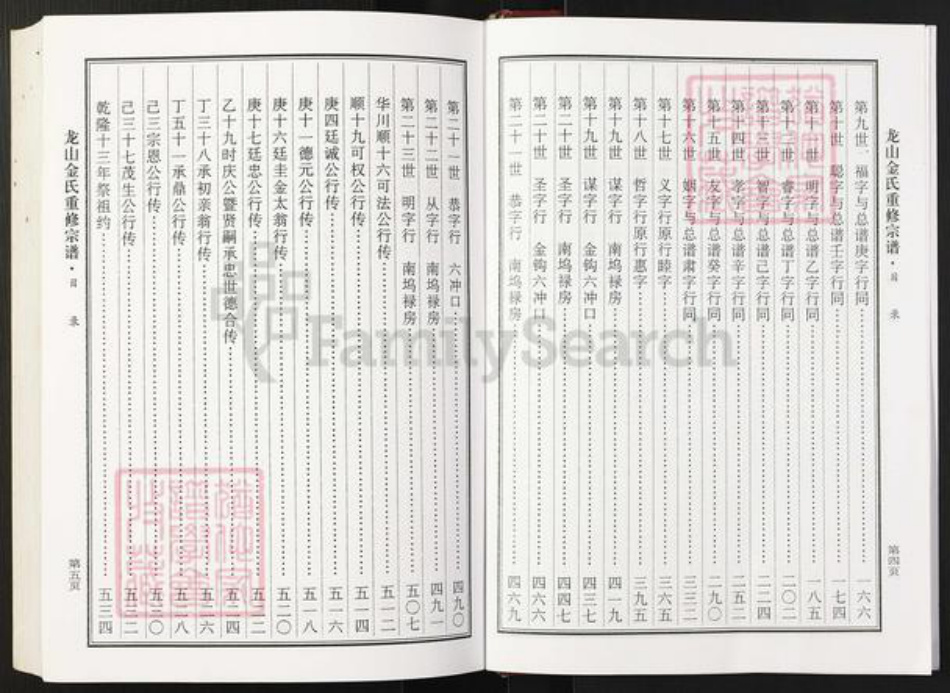 龙山金氏重修宗谱·目录
第四页
第九世 福字与总谱庚字行同 一六六
第十世 聪字与总谱壬字行同 一七四
第十一世 明字与总谱乙字行同 一八五
第十二世 睿字与总谱丁字行同 二〇二
第十三世 智字与总谱己字行同 二二四
第十四世 孝字与总谱辛字行同 二五二
第十五世 友字与总谱癸字行同 二九〇
第十六世 姻字与总谱肃字行同 三三二
第十七世 义字行原行睦字 三六五
第十八世 哲字行原行惠字 三九五
第十九世 谋字行 南坞禄房 四一九
第十九世 谋字行 金钩六冲口 四三七
第二十世 圣字行 南坞禄房 四四七
第二十世 圣字行 金钩六冲口 四六六
第二十一世 恭字行 南坞禄房 四六九
第二十一世 恭字行 六冲口 四九〇
第二十二世 从字行 南坞禄房 四九一
第二十三世 明字行 南坞禄房 五〇七
华川顺十六可法公行传 五一二
顺十九可权公行传 五一四
庚四廷诚公行传 五一六
庚十一德元公行传 五一八
庚十六廷圭金太翁行传 五二〇
庚十七廷忠公行传 五二二
乙十九时庆公暨贤嗣承忠世德合传 五二四
丁三十八承初亲翁行传 五二六
丁五十一承鼎公行传 五二八
己三宗恩公行传 五三〇
己三十七茂生公行传 五三二
乾隆十三年祭祖约 五三四
龙山金氏重修宗谱·目录
第五页
FamilySearch